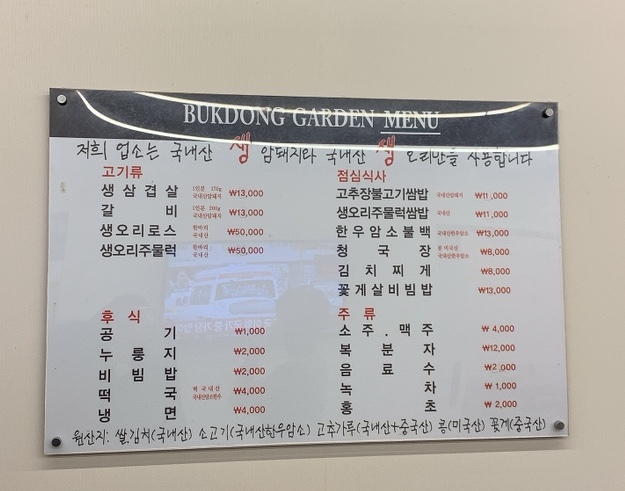 BUKDONG GARDEN MENU
저희 업소는 국내산 생 암돼지와 국내산 생 오리만을 사용합니다
고기류
생삼겹살 1인분 170g 국내산암돼지 ₩13,000
갈비 1인분 200g 국내산암돼지 ₩13,000
생오리로스 한마리 국내산 ₩50,000
생오리주물럭 한마리 국내산 ₩50,000
점심식사
고추장불고기쌈밥 국내산암돼지 ₩11,000
생오리주물럭쌈밥 국내산 ₩11,000
한우암소불백 국내산한우암소 ₩13,000
청국장 콩 미국산 국내산한우암소 ₩8,000
김치찌게 ₩8,000
꽃게살비빔밥 ₩13,000
후식
공기 ₩1,000
누룽지 ₩2,000
비빔밥 ₩2,000
떡국 떡 국내산 ₩4,000
냉면 ₩4,000
주류
소주.맥주 ₩4,000
복분자 ₩12,000
음료수 ₩2,000
녹차 ₩1,000
홍초 ₩2,000
원산지: 쌀.김치(국내산) 소고기(국내산한우암소) 고추가루(국내산+중국산) 콩(미국산) 꽃게(중국산)